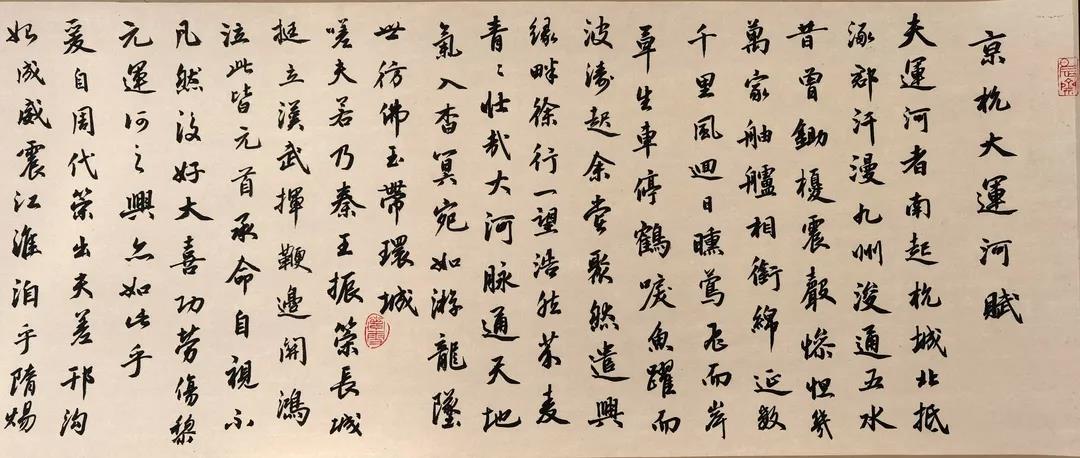 京杭大運河賦
夫運河者南起杭城北抵
涿郡汗漫九州浚通五水
昔曾鋤櫌震聲慘怛幾
萬家舳艫相銜綿延數
千里風迴日曛鶯飛而岸
草生車停鶴唳魚躍而
波濤起余嘗聚然遣興
緣畔徐行一望浩然菽麦
青々壮哉大河脉通天地
氣入杳冥宛如游龍墜
世彷彿玉帶環城
嗟夫若乃秦王振策長城
挺立漢武揮鞭邊關鴻
泣此皆元首承命自視不
凡然没好大喜功劳傷黎
元運河之興亦如此乎
爰自周代策出夫差邗沟
始成威震江淮泊乎隋煬